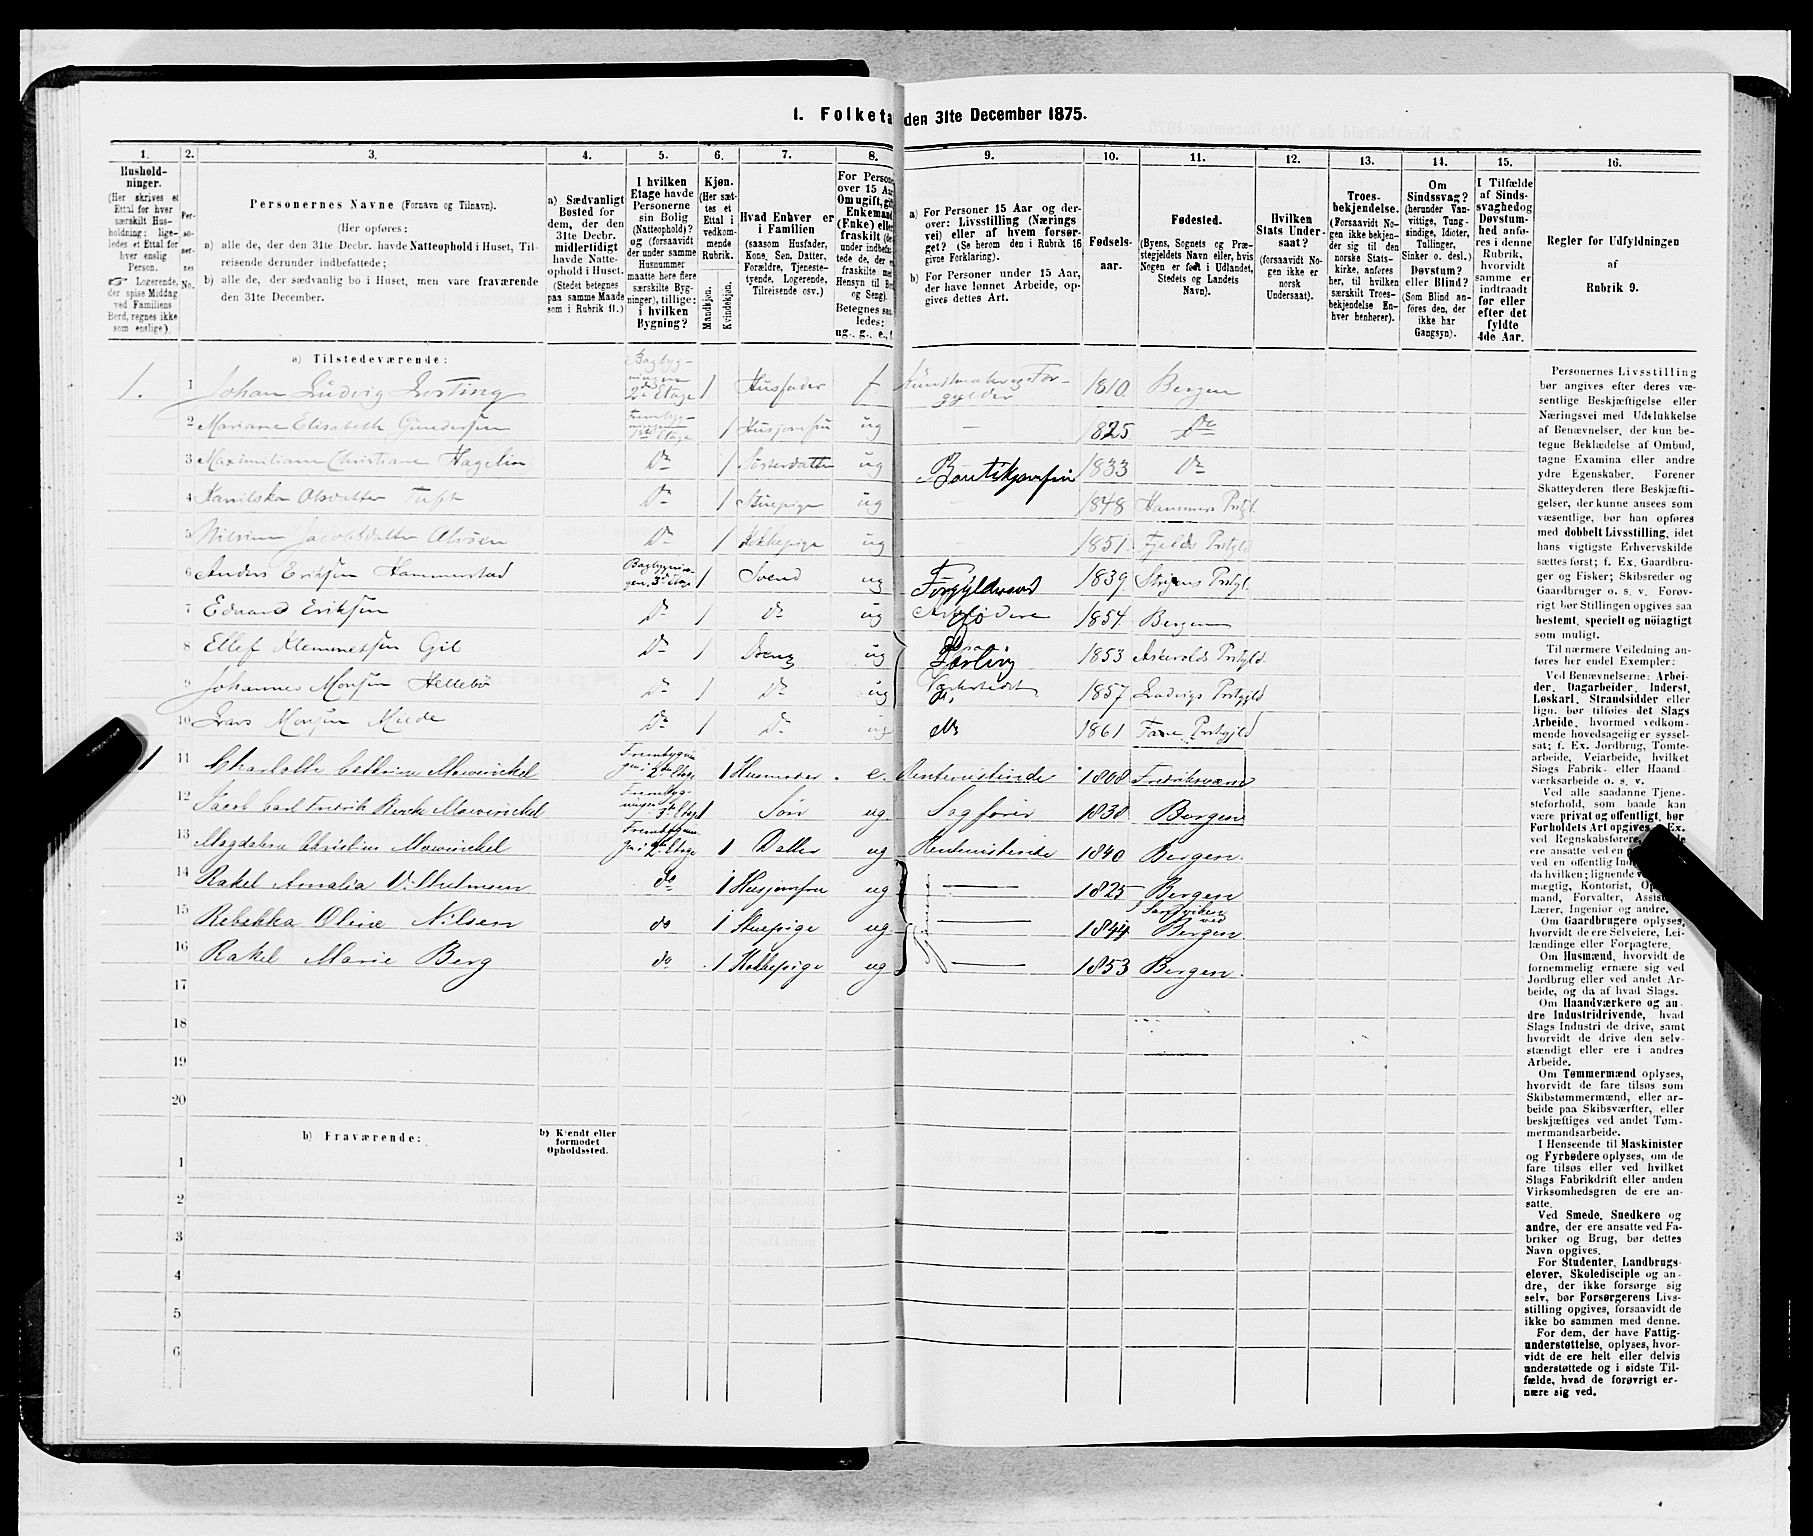 1. Folketa den 31te December 1875.
1. 2. 3. 4. 5. 6. 7. 8. 9. 10. 11. 12. 13. 14. 15. 16.
Hushold-
ninger.
(Her skrives et
Ettal for hver
særskilt Hus-
holdning; lige-
ledes et Ettal for
hver enslig
Person.
Logerende,
der spise Middag
ved Familiens
Bord, regnes ikke
som enslige).
Per-
so-
ner-
nes
No.
Personernes Navne (Fornavn og Tilnavn).
(Her opføres:
a) alle de, der den 31te Decbr. havde Natteophold i Huset, Til-
reisende derunder indbefattede;
b) alle de, der sædvanlig bo i Huset, men vare fraværende
den 31te December.
a) Sædvanligt
Bosted for
dem, der den
31te Decbr.
midlertidigt
havde Natte-
ophold i Huset.
(Stedet betegnes
paa samme Maade
som i Rubrik 11.)
I hvilken
Etage havde
Personerne
sin Bolig
(Natteophold)?
og (forsaavidt
der under samme
Husnummer
maatte høre flere
særskilte Byg-
ninger), tillige:
i hvilken
Bygning?
Kjøn.
(Her sæt-
tes et
Ettal i
vedkom-
mende
Rubrik.
Mandkjøn.
Kvindekjøn.
Hvad Enhver er
i Familien
(saasom Husfader,
Kone, Søn, Datter,
Forældre, Tjeneste-
tyende, Logerende,
Tilreisende osv.)
For Persone
over 15 Aar
Om ugift, gift
Enkemand
(Enke) eller
fraskilt (de
under indbefat-
tede de, der er
fraskilte med
Hensyn til Bo
og Seng).
Betegnes saa-
ledes:
ug., g., e., f.
a) For Personer 15 Aar og der-
over: Livsstilling (Nærings
vei) eller af hvem forsør-
get? (Se herom den i Rubrik 16
givne Forklaring).
b) For Personer under 15 Aar,
der have lønnet Arbeide, op-
gives dettes Art.
Fødsels-
aar.
Fødested.
(Byens, Sognets og Præ-
stegjeldets Navn eller, hvis
Nogen er født i Udlandet,
Stedets og Landets
Navn).
Hvilken
Stats Under-
saat?
(forsaavidt No-
gen ikke er
norsk
Undersaat).
Troes-
bekjendelse.
(Forsaavidt No-
gen ikke bekjen-
der sig til den
norske Stats-
kirke, anføres
her, til hvilken
særskilt Troes-
bekjendelse En-
hver henhører).
Om
Sindssvag?
(herunder Van-
vittige, Tung-
sindige, Idioter,
Tullinger,
Sinker o. desl.)
Døvstum?
eller Blind?
(Som Blind an-
føres den, der
ikke har
Gangsyn).
I Tilfælde
af Sinds-
svaghed og
Døvstum-
hed anfø-
res i denne
Rubrik,
hvorvidt
samme er
indtraadt
før eller
efter det
fyldte
4de Aar.
Regler for Udfyldningen
af
Rubrik 9.
a) Tilstedeværende:
1. 1 Johan Ludvig Losting Bagbyg- ningen 2den Etage 1 Husfader f Kunstmaler og For- gylder 1810 Bergen
2 Mariane Elisabeth Gundersen 1ste Etage 1 Husjomfru ug — 1825 Do
3 Maximiliane Christiane Hagelin Do 1 Søsterdatter ug Boutikjomfru 1833 Do
4 Olsdatter Do 1 Stuepige ug 1848 Hammers Prstgl.
5 Jacobsdatter Alvøen Do 1 Kokkepige ug 1851 Fjelds Prstgld
6 Anders Eriksen Hammerstad Bagbygnin- gen 3die Etage 1 Svend ug Forgyldersvend 1839 Prstgl.
7 Eduard Eriksen Do 1 Do ug 1854 Bergen
8 Ellef Klemmetsen Gil Do 1 Dreng ug 1853 Askevolds Prstgld.
9 Johannes Monsen Hellebø Do 1 Do ug Værkstedet 1857 Ladvigs Prstgjld
10 Lars Monsen Milde Do 1 Do ug Do 1861 Fane Prstgjld
1 11 Charlotte Cathrine Mowinckel Frembygnin- gen i 2den Etage 1 Husmoder e. Rentenistinde 1808 Fredriksværn
12 Jacob Carl Fredrik Mowinckel Frembyg- ningen 3die Etage 1 Søn ug Sagfører 1838 Bergen
13 Magdalena Christine Mowinckel Frembygnin- gen i 2den Etage 1 Datter ug Rentenistinde 1840 Bergen.
14 Rakel Amalia Vilhelmsen do 1 Husjomfru ug — 1825 Bergen
15 Rebekka Oline Nilsen do 1 Stuepige ug — 1844 Sandviken ved Bergen.
16 Rakel Marie Berg do 1 Kokkepige ug — 1853 Bergen.
17
18
19
20
b) Fraværende:
b) Kjendt eller
formodet
Opholdssted.
1
2
3
4
5
6
Personernes Livsstilling
bør angives efter deres væ-
sentlige Beskjæftigelse eller
Næringsvei med Udelukkelse
af Benævnelser, der kun be-
tegne Beklædelse af Ombud,
tagne Examina eller andre
ydre Egenskaber. Forener
Skatteyderen flere Beskjæfti-
gelser, der kunne ansees som
væsentlige, bør han opføres
med dobbelt Livsstilling, idet
hans vigtigste Erhvervskilde
sættes først; f. Ex. Gaardbru-
ger og Fisker; Skibsreder og
Gaardbruger o. s. v. Forøv-
rigt bør Stillingen opgives saa
bestemt, specielt og nøiagtigt
som muligt.
Til nærmere Veiledning an-
føres her endel Exempler:
Ved Benævnelserne: Arbei-
der, Dagarbeider, Inderst,
Løskarl, Strandsidder eller
lign. bør tilføies det Slags
Arbeide, hvormed vedkom-
mende hovedsagelig er syssel-
sat; f. Ex. Jordbrug, Tømte-
arbeide, Veiarbeide, hvilket
Slags Fabrik- eller Haand-
værksarbeide o. s. v.
Ved alle saadanne Tjene-
steforhold, som baade kan
være privat og offentligt, bør
Forholdets Art opgives, f. Ex.
ved Regnskabsførere,
ere ansatte ved en
ved en offentlig Ind
da hvilken; lignende v
mægtig, Kontorist, Op
mand, Forvalter, Assist
Lærer, Ingeniør og andre.
Om Gaardbrugere oplyses,
hvorvidt de ere Selveiere, Lei-
lændinge eller Forpagtere.
Om Husmænd, hvorvidt de
fornemmelig ernære sig ved
Jordbrug eller ved andet Ar-
beide, og da af hvad Slags.
Om Haandværkere og an-
dre Industridrivende, hvad
Slags Industri de drive, samt
hvorvidt de drive den selv-
stændigt eller ere i andres
Arbeide.
Om Tømmermænd oplyses,
hvorvidt de fare tilsøs som
Skibstømmermænd, eller ar-
beide paa Skibsværfter, eller
beskjæftiges ved andet Tøm-
mermandsarbeide.
I Henseende til Maskinister
og Fyrbødere oplyses, om de
fare tilsøs eller ved hvilket
Slags Fabrikdrift eller anden
Virksomhedsgren de ere an-
satte.
Ved Smede, Snedkere og
andre, der ere ansatte ved Fa-
briker og Brug, bør dettes
Navn opgives.
For Studenter, Landbrugs-
elever, Skoledisciple og an-
dre, der ikke forsørge sig
selv, bør Forsørgerens Livs-
stilling opgives, forsaavidt de
ikke bo sammen med denne.
For dem, der have Fattig-
understøttelse, oplyses, hvor-
vidt de ere helt eller delvis
understøttede og i sidste Til-
fælde, hvad de forøvrigt er-
nære sig ved.